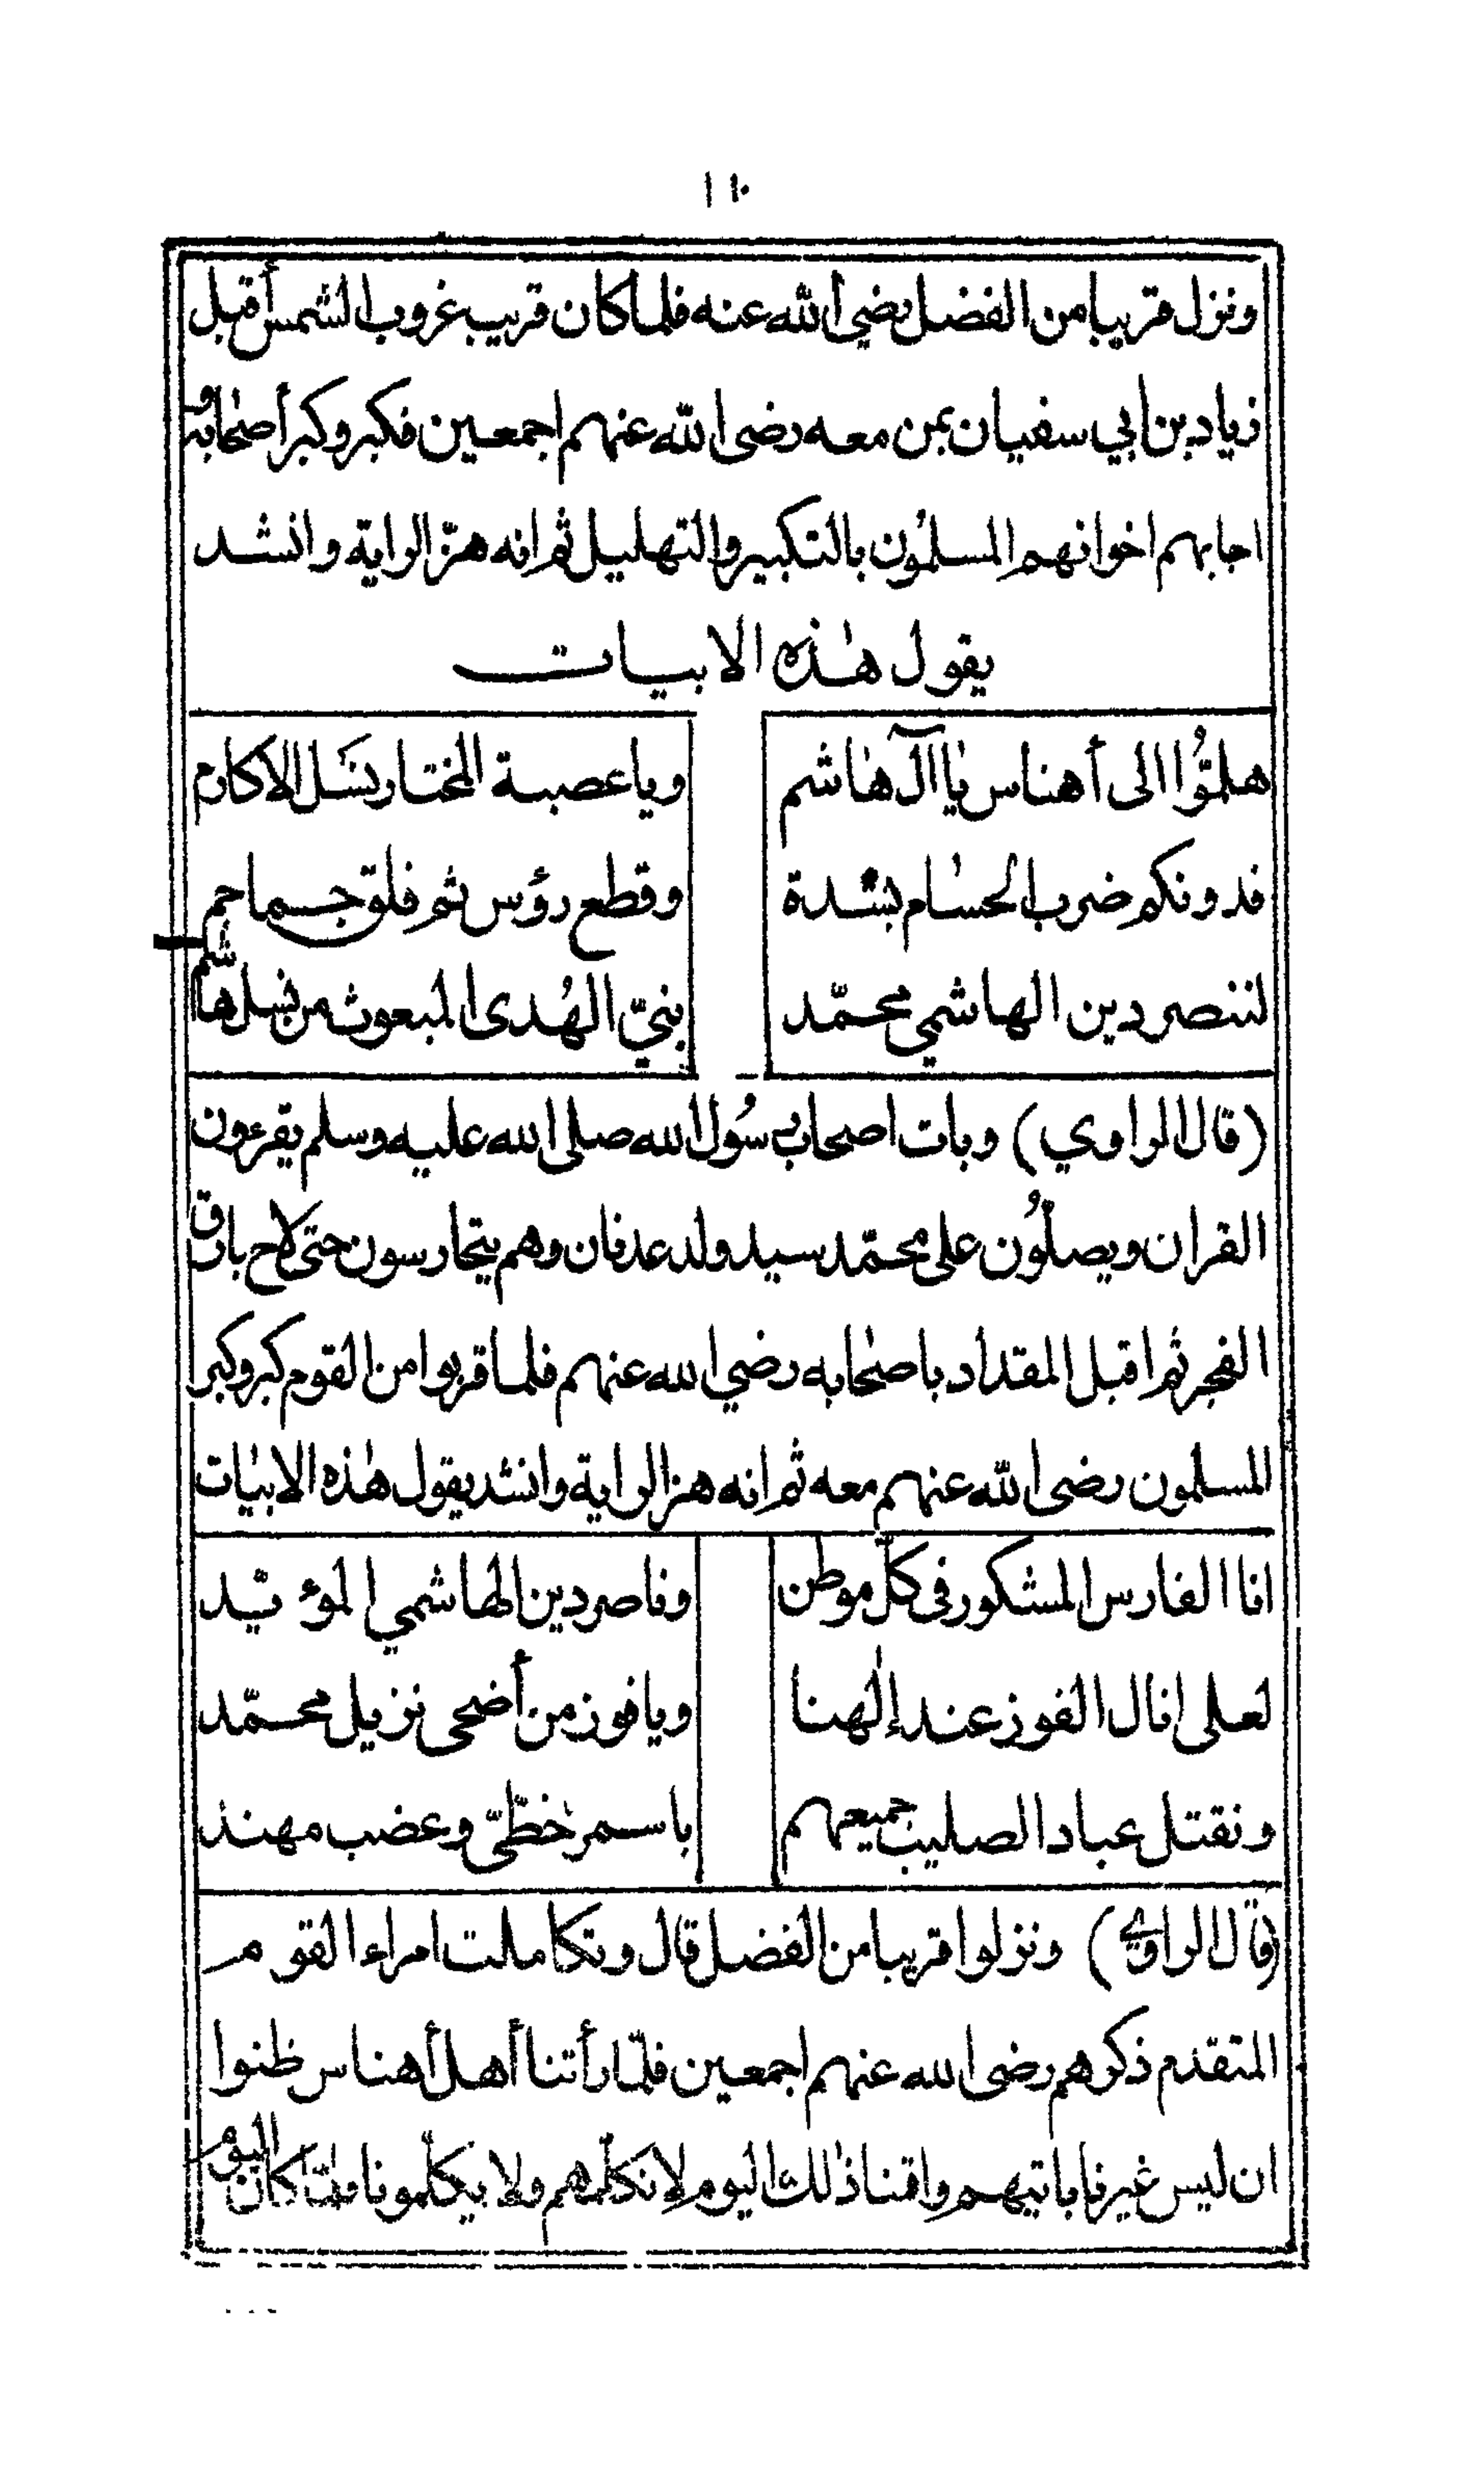 ١١٠
ونزل قريبا من الفضل رضي الله عنه فلما كان قريب غروب الشمس أقبل
زياد بن ابي سفيان بمن معه رضى الله عنهم اجمعين فكبر وكبر أصحابه و
اجابهم اخوانهم المسلمُون بالتكبير والتهليل ثم انه هزّ الراية وانشد
يقول هٰذه الابيات
هلمُّوا الى أهناس يٰا آل هٰاشم ويا عصبة المختار نسَل الاكارم
فدونكم ضرب الحسٰام بشدة وقطع رؤس ثم فلق جماجم
لننصر دين الهاشمي محمّد بنيّ الهُدى المبعوث من نسل هاشم
(قال الراوي) وبات اصحاب رسُول الله صلى الله عليه وسلم يقرءون
القران ويصلُون على محمّد سيد ولد عدنان وهم يتحارسون حتى لاح بارق
الفجر ثم اقبل المقداد باصحٰابه رضي الله عنهم فلما قربوا من القوم كبر وكبر
المسلمون رضى الله عنهم معه ثم انه هز الراية وانشد يقول هٰذه الابيٰات
انا الفارس المشكور فى كلّ موطن وناصر دين الهاشمي المؤيّد
لعلى انال الفوز عند إلٰهنا ويا فوز من أضحى نزيل محمّد
ونقتل عباد الصليب جميعهم باسمر خطّىّ وعضب مهند
(قال الراوي) ونزلوا قريبا من الفضل قال وتكاملت امراء القوم
المتقدم ذكرهم رضى الله عنهم اجمعين فلمّا رأتنا أهل أهناس ظنوا
ان ليس غيرنا ياتيهم واقمنا ذٰلك اليوم لا نكلّمهم ولا يكلّمونا فلمّا كان اليوم